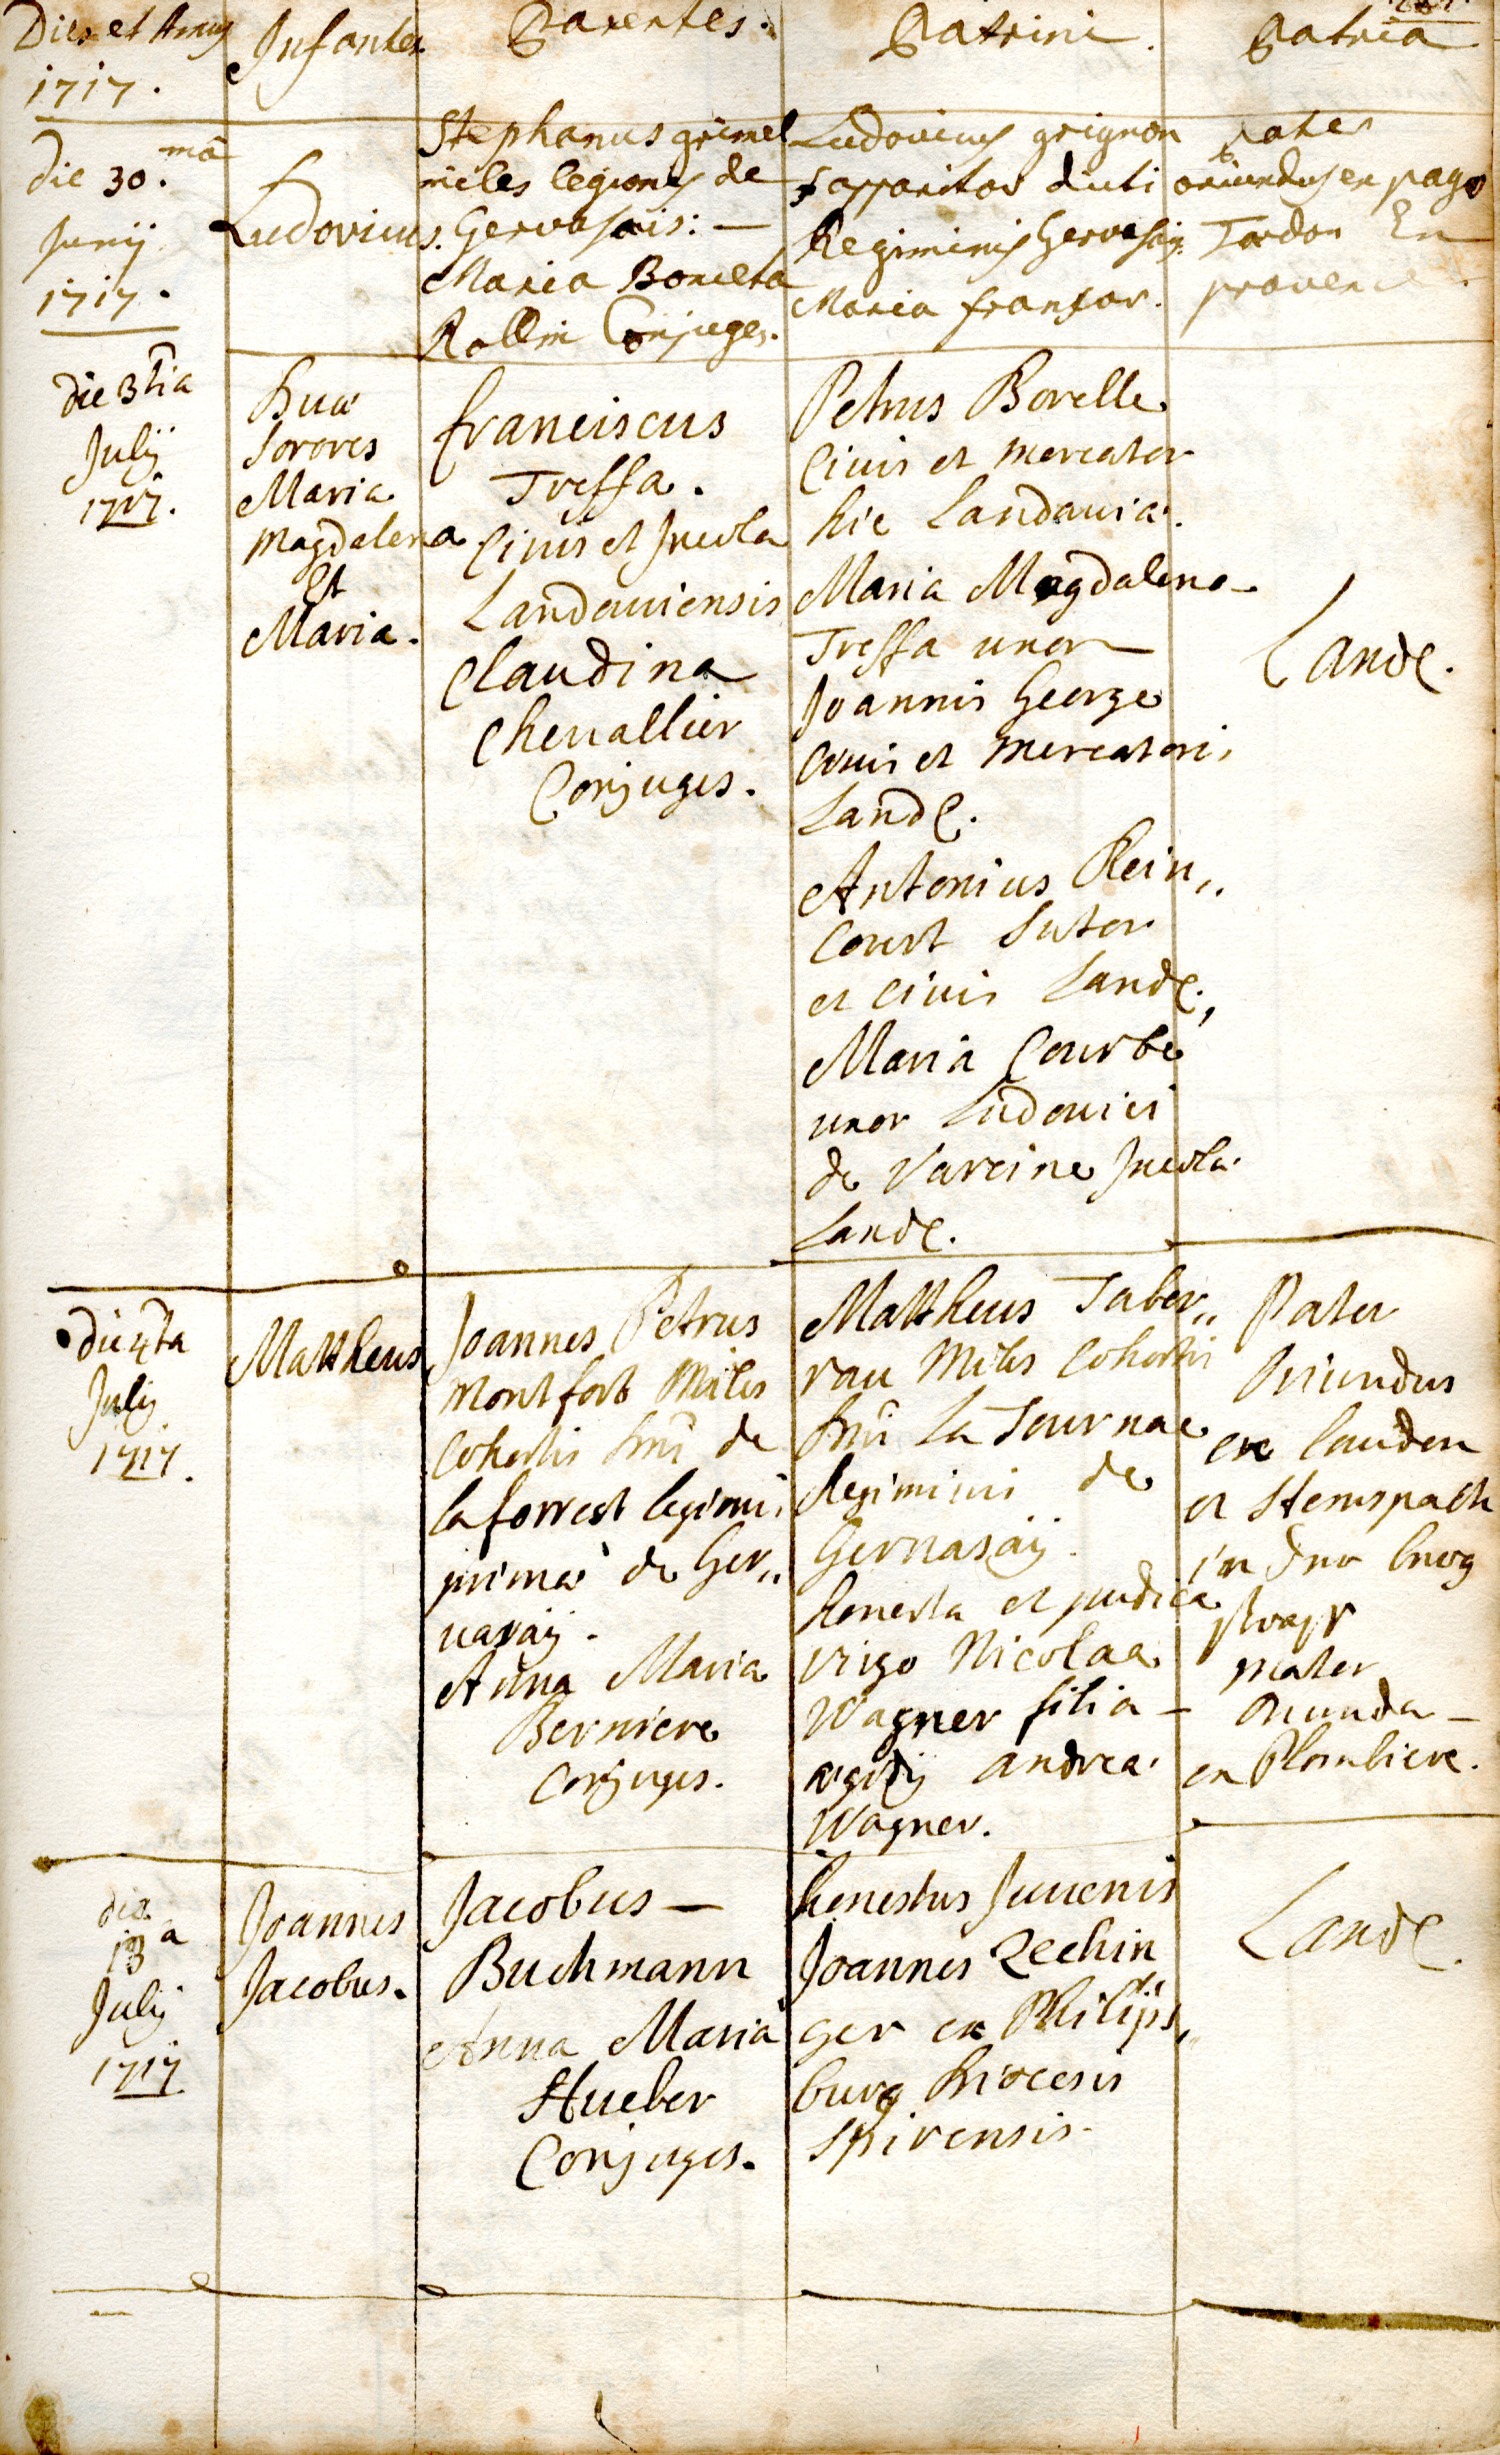 Dies et Annus
1717.
Infantes
Parentes.
Patrini.
Patria
die 30.ma
Junij
1717.
Ludovicus.
Stephanus grimel
miles legionis de
Gervasais: —
Maria Boneta
Rollin Conjuges.
Ludovicus grignon
apparitor dicti
Regiminis Gervasaij.
Maria françois.
Pater
oriundus ex pago
Tordon En
provence.
die 3tia
Julij
1717.
Duæ
Sorores
Maria
Magdalena
Et
Maria.
franciscus
Treffa.
Civis et Incola
Landauiensis
Claudina
Cheuallier
Conjuges.
Petrus Borelle
Ciuis et mercator
hic Landauiæ.
Maria Magdalena
Treffa uxor
Joannis George
Ciuis et mercatoris
Landæ.
Antonius Rein„
Court Sutor
et Ciuis Landæ.,
Maria Courbe
uxor Ludouici
de Vareine Incolæ
Landæ.
Landæ.
die 4ta
Julij
1717.
Mattheus
Joannes Petrus
Montfort Miles
Cohortis Dni de
la forrest legionis
primæ de Ger„
uasaij.
Anna Maria
Berniere
Conjuges.
Mattheus Taber„
rau Miles Cohortis
Dni La Tournae
Regiminis de
Geruasaij.
honesta et pudica
virgo Nicolaa
Wagner filia —
ægidij andreæ
Wagner.
Pater
Oriundus
ex
et
in
mater
Oriunda —
ex Plombiere.
die
13a
Julij
1717
Joannes
Jacobus.
Jacobus —
Buchmann
Anna Maria
Hueber
Conjuges.
honestus Juuenis
Joannes Zechin
ger ex Philips„
burg Diocesis
Spirensis.
Landæ.